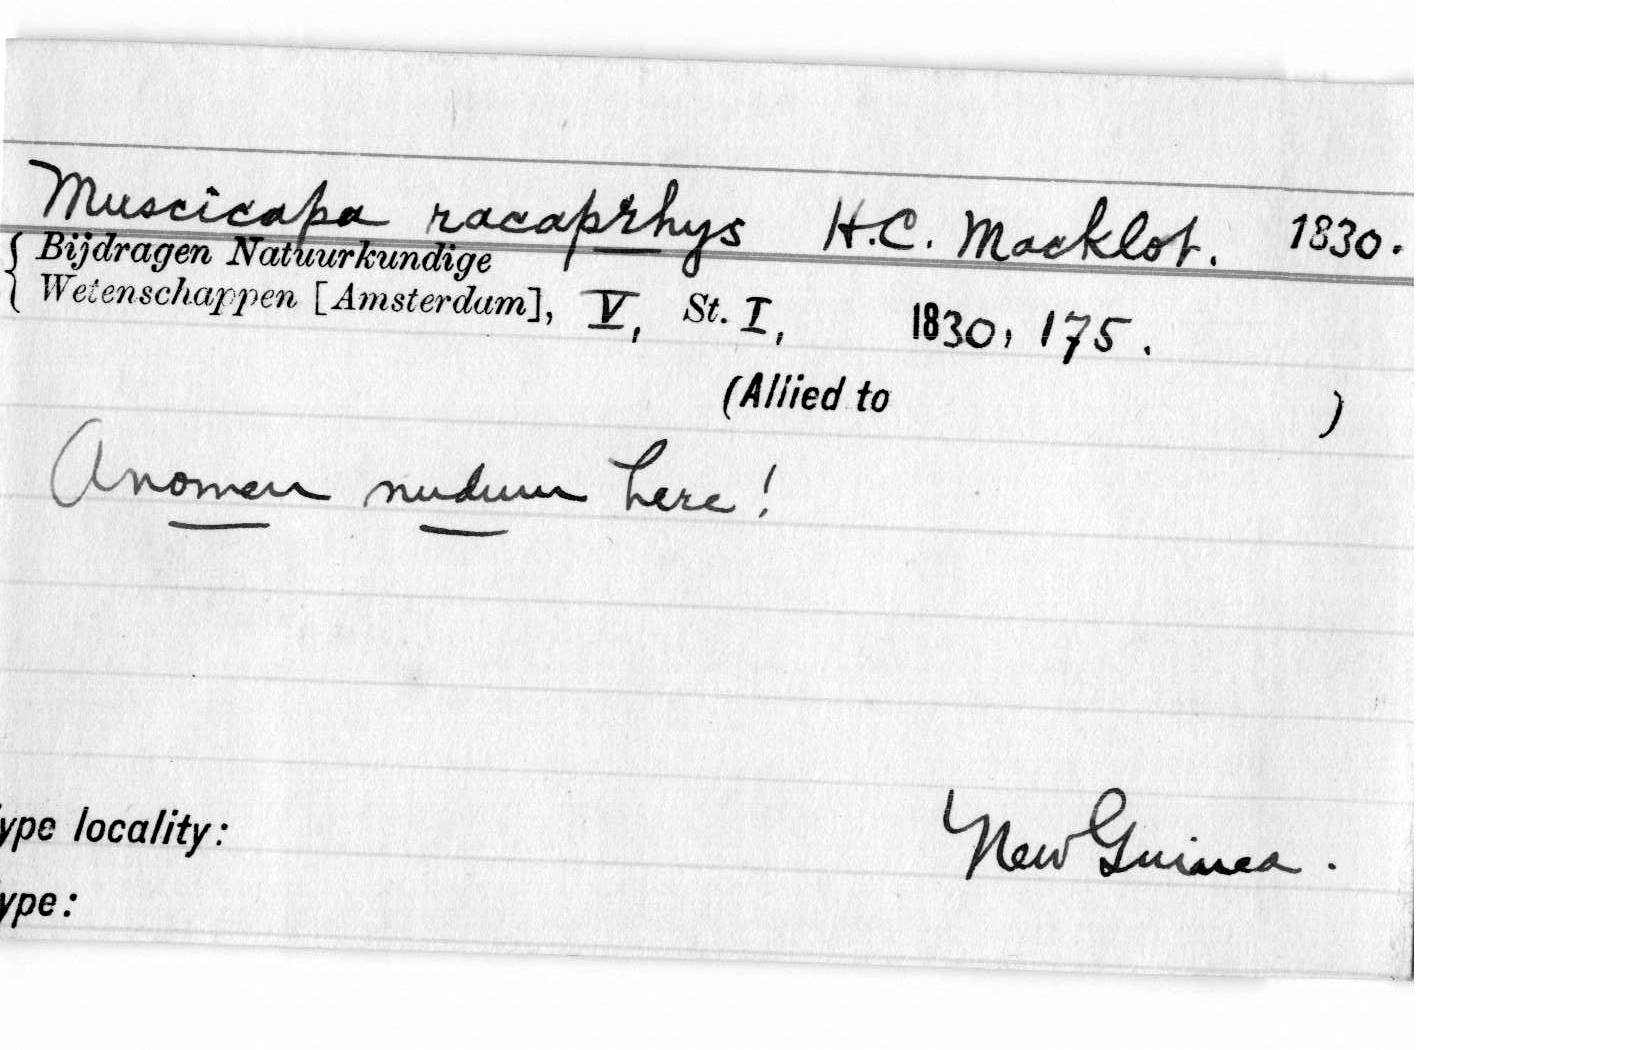 Muscicapa racaprhys H.C. Macklot. 1830.
{ Bijdragen Natuurkundige
Wetenschappen [Amsterdam], V, St. I, 1830, 175.
(Allied to )
A nomen nudum here!
ype locality: New Guinea.
ype: